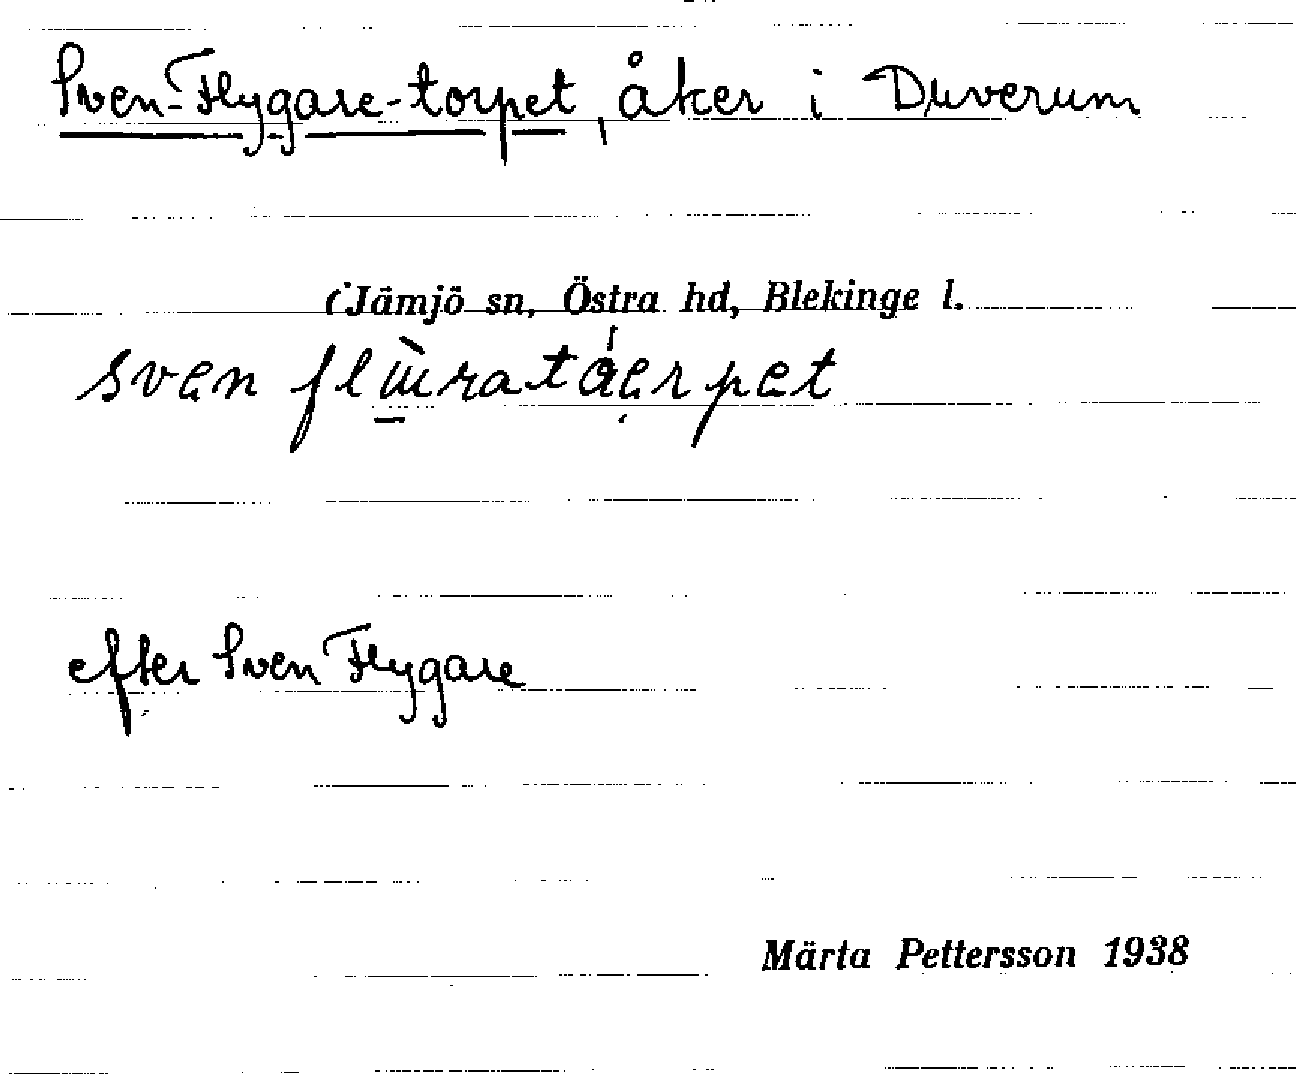 Sven-Flygare-torpet, åker i Duverum
(Jämjö sn, Östra hd, Blekinge l.
sven
efter Sven Flygare
Märta Pettersson 1938